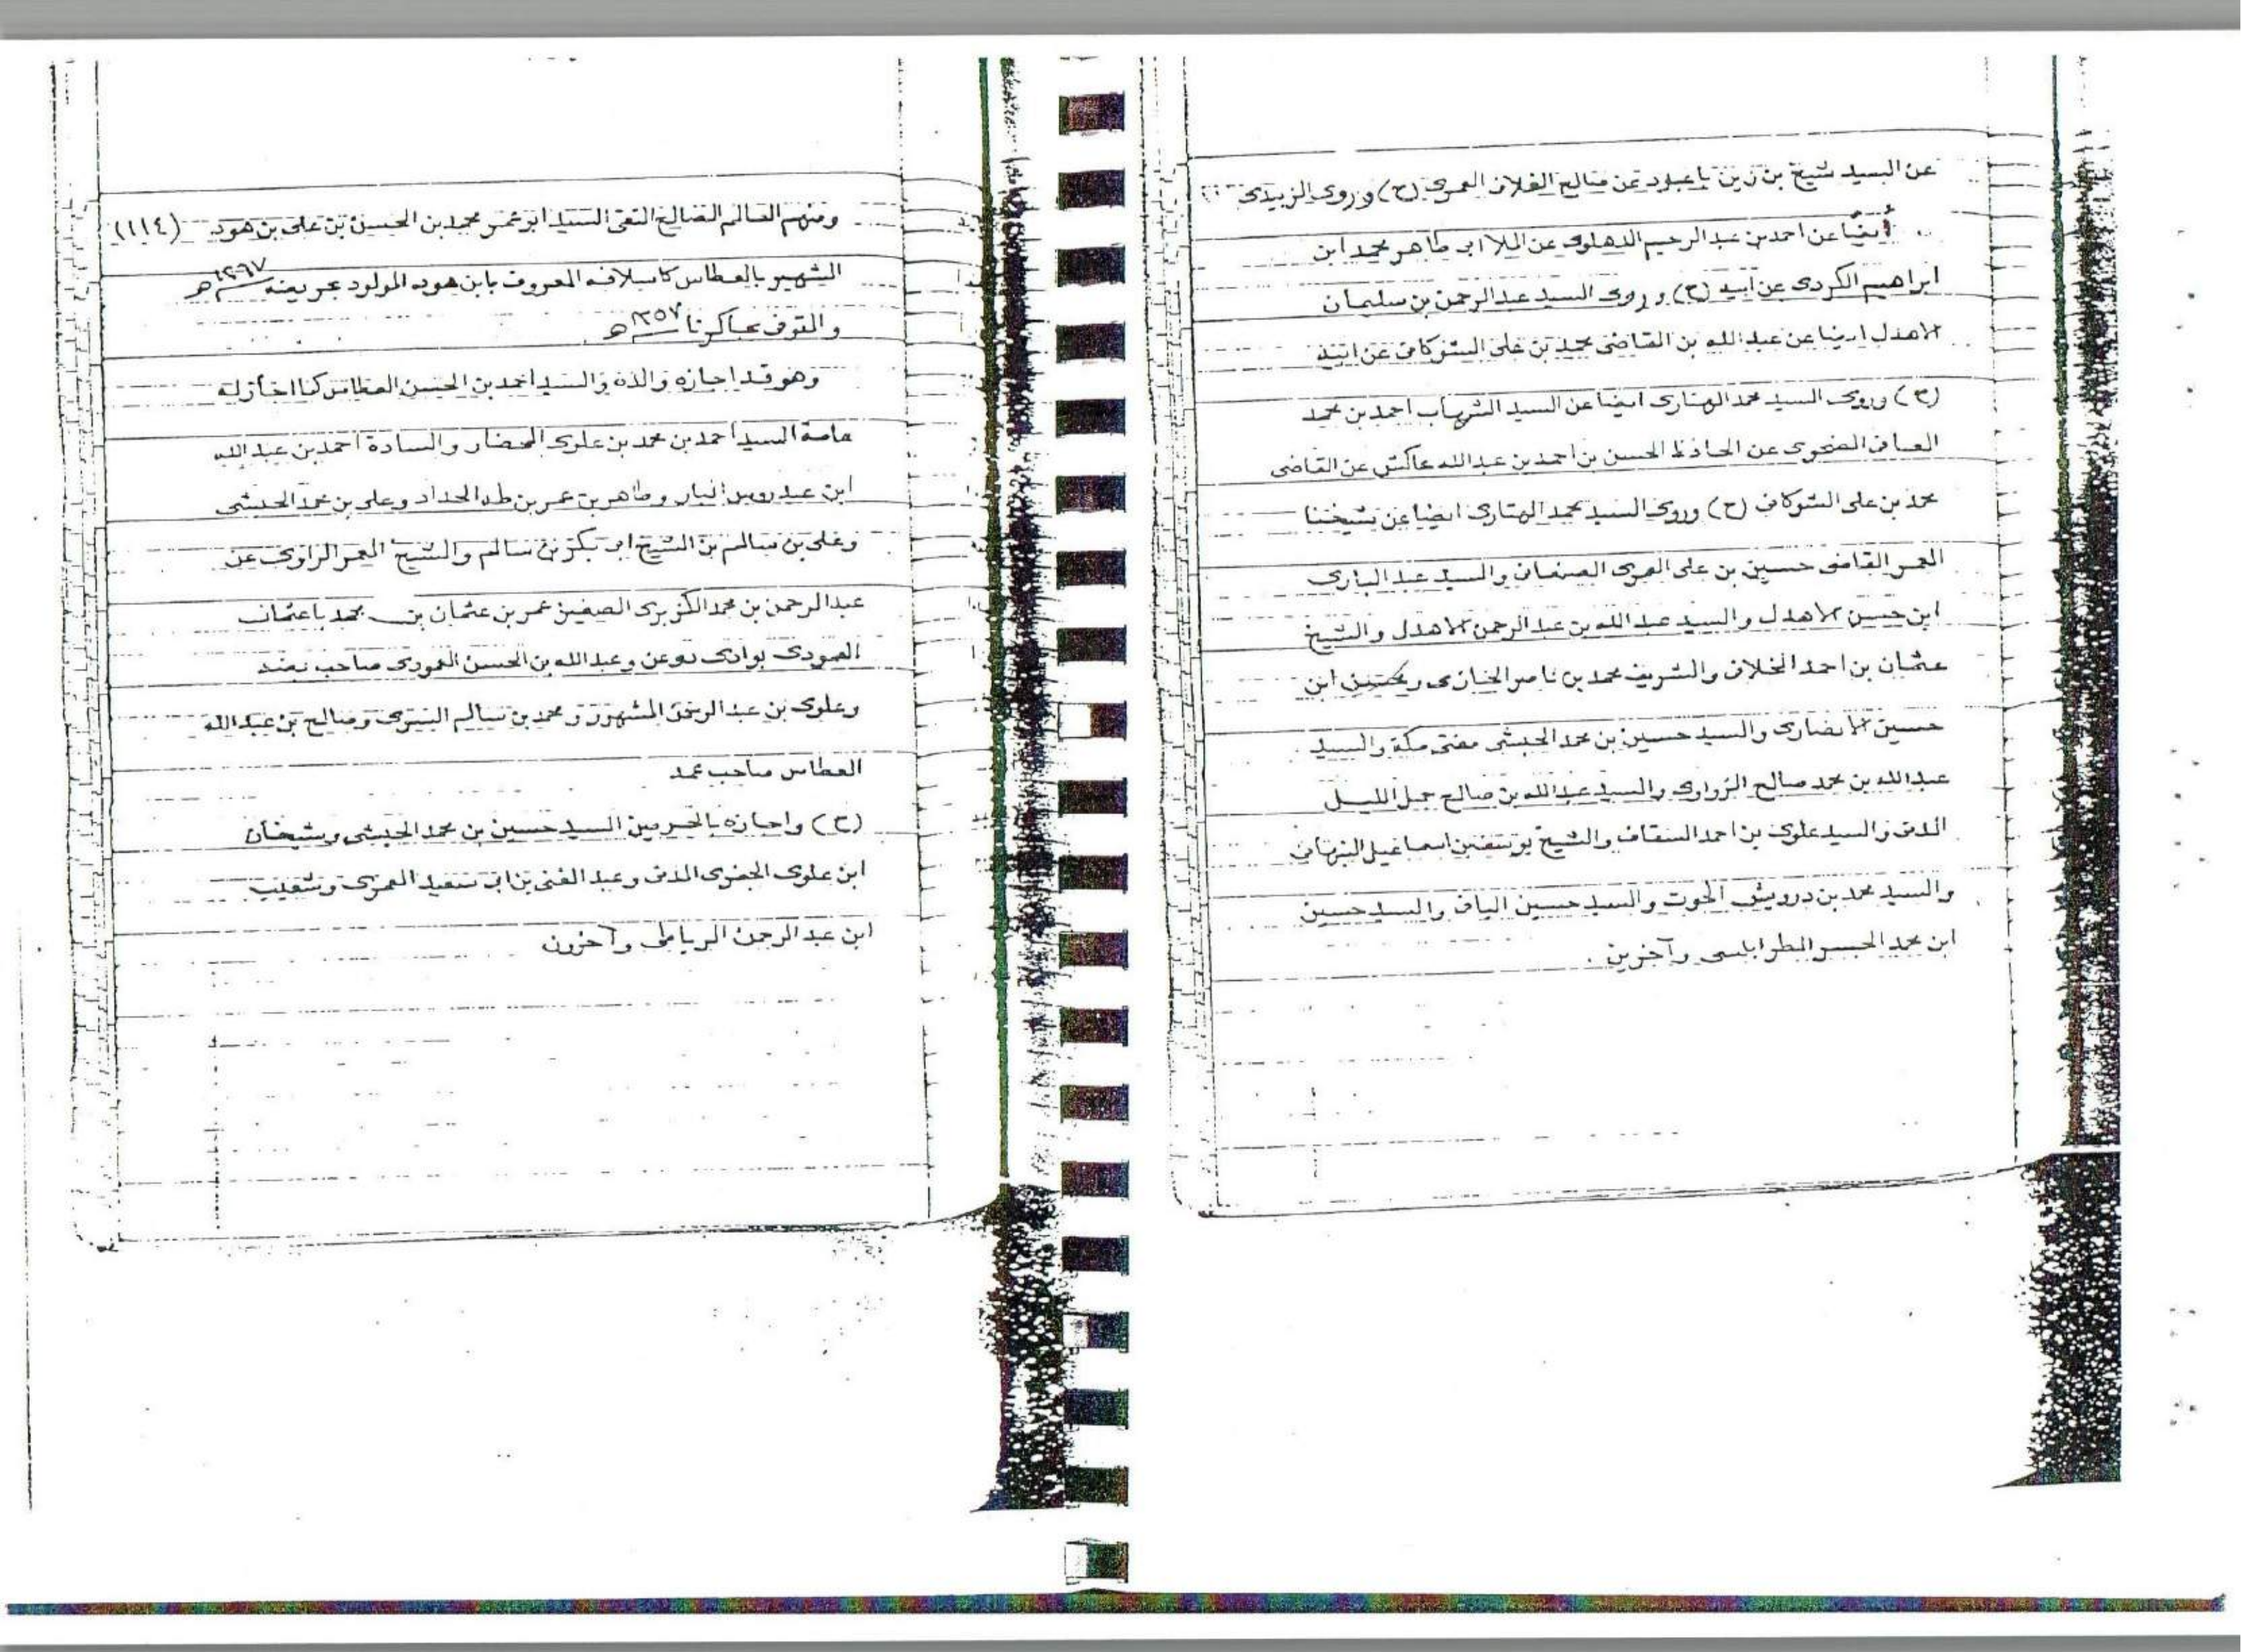 عن السيد شيخ بن زين باعبود عن صالح الفلاني العمري (ح) وروى الزبيدي
أيضاً عن احمد بن عبد الرحيم الدهلوى عن الملا ابى طاهر محمد ابن
ابراهيم الكردى عن ابيه (ح) وروى السيد عبد الرحمن بن سليمان
الاهدل ايضا عن عبد الله بن القاضى محمد بن على الشوكانى عن ابيه
(ح) وروى السيد محمد الهتارى ايضا عن السيد الشهاب احمد بن محمد
العمافى الضحوى عن الحافظ الحسن بن احمد بن عبد الله عاكش عن القاضى
محمد بن على الشوكانى (ح) وروى السيد محمد الهتارى ايضا عن شيخنا
المعمر القاضى حسين بن على العمرى الصنعانى والسيد عبد البارى
ابن حسن الاهدل والسيد عبد الله بن عبد الرحمن الاهدل والشيخ
عثمان بن احمد الخلافى والشريف محمد بن ناصر الحازمى و ابن
حسين الانصارى والسيد حسين بن محمد الحبشى مفتى مكة والسيد
عبد الله بن محمد صالح الزواوى والسيد عبد الله بن صالح جمل الليل
المدنى والسيد علوى بن احمد السقاف والشيخ يوسف بن اسماعيل النبهانى
والسيد محمد بن درويش الحوت والسيد حسين اليافى والسيد حسين
ابن محمد الجسر الطرابلسى وآخرين .
ومنهم العالم الصالح التقى السيد ابو عمر محمد بن الحسن بن على بن هود (١١٤)
الشهير بالعطاس كاسلافه المعروف بابن هود المولود بحريضه ١٢٩٧هـ
والمتوفى بجاكرتا ١٣٥٧هـ
وهو قد اجازه والده والسيد احمد بن الحسن العطاس كما اجاز له
عامة السيد احمد بن محمد بن علوى المحضار والسادة احمد بن عبد الله
ابن عيدروس البار وطاهر بن عمر بن طه الحداد وعلى بن محمد الحبشى
وعلى بن سالم بن الشيخ ابى بكر بن سالم والشيخ المعمر الراوى عن
عبد الرحمن بن محمد الكزبرى الصغير عمر بن عثمان بن محمد باعثمان
العمودى بوادى دوعن وعبد الله بن الحسن العمودى صاحب بضه
وعلوى بن عبد الرحمن المشهور ومحمد بن سالم السرى وصالح بن عبد الله
العطاس صاحب عمد
(ح) واجازه بالحرمين السيد حسين بن محمد الحبشى وشيخان
ابن علوى الجفرى المدنى وعبد الغنى بن ابى سعيد العمرى وشعيب
ابن عبد الرحمن الرباطى وآخرون